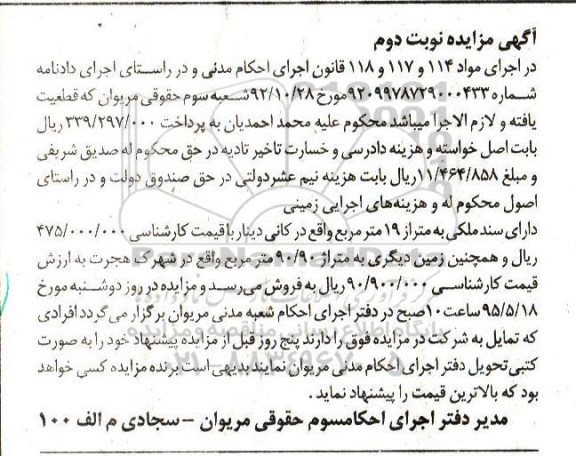 آگهی مزایده نوبت دوم
در اجرای مواد ۱۱۴ و ۱۱۷ و ۱۱۸ قانون اجرای احکام مدنی و در راستای اجرای دادنامه
شماره ۹۲۰۹۹۷۸۷۲۹۰۰۰۴۳۳مورخ ۹۲/۱۰/۲۸شعبه سوم حقوقی مریوان که قطعیت
یافته و لازم الاجرا میباشد محکوم علیه محمد احمدیان به پرداخت ۳۳۹/۲۹۷/۰۰۰ ریال
بابت اصل خواسته و هزینه دادرسی و خسارت تاخیر تادیه در حق محکوم له صدیق شریفی
و مبلغ ۱۱/۴۶۴/۸۵۸ریال بابت هزینه نیم عشردولتی در حق صندوق دولت و در راستای
اصول محکوم له و هزینه‌های اجرایی زمینی
دارای سندملکی به متراژ ۱۹ متر مربع واقع در کانی دینار با قیمت کارشناسی ۴۷۵/۰۰۰/۰۰۰
ریال و همچنین زمین دیگری به متراژ ۹۰/۹۰ متر مربع واقع در شهرک هجرت به ارزش
قیمت کارشناسی ۹۰/۹۰۰/۰۰۰ ریال به فروش می‌رسد و مزایده در روز دوشنبه مورخ
۹۵/۵/۱۸ ساعت ۱۰صبح در دفتر اجرای احکام شعبه مدنی مریوان برگزار می‌گردد افرادی
که تمایل به شرکت در مزایده فوق را دارند پنج روز قبل از مزایده پیشنهاد خود را به صورت
کتبی تحویل دفتر اجرای احکام مدنی مریوان نمایند بدیهی است برنده مزایده کسی خواهد
بود که بالاترین قیمت را پیشنهاد نماید .
مدیر دفتر اجرای احکامسوم حقوقی مریوان – سجادی م الف ۱۰۰